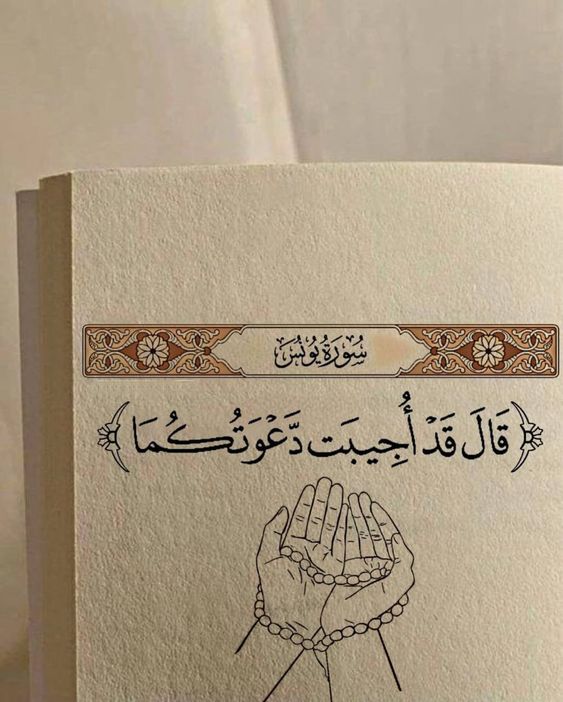 سُورَةُ يُونُسَ
﴿قَالَ قَدۡ أُجِيبَت دَّعۡوَتُكُمَا﴾